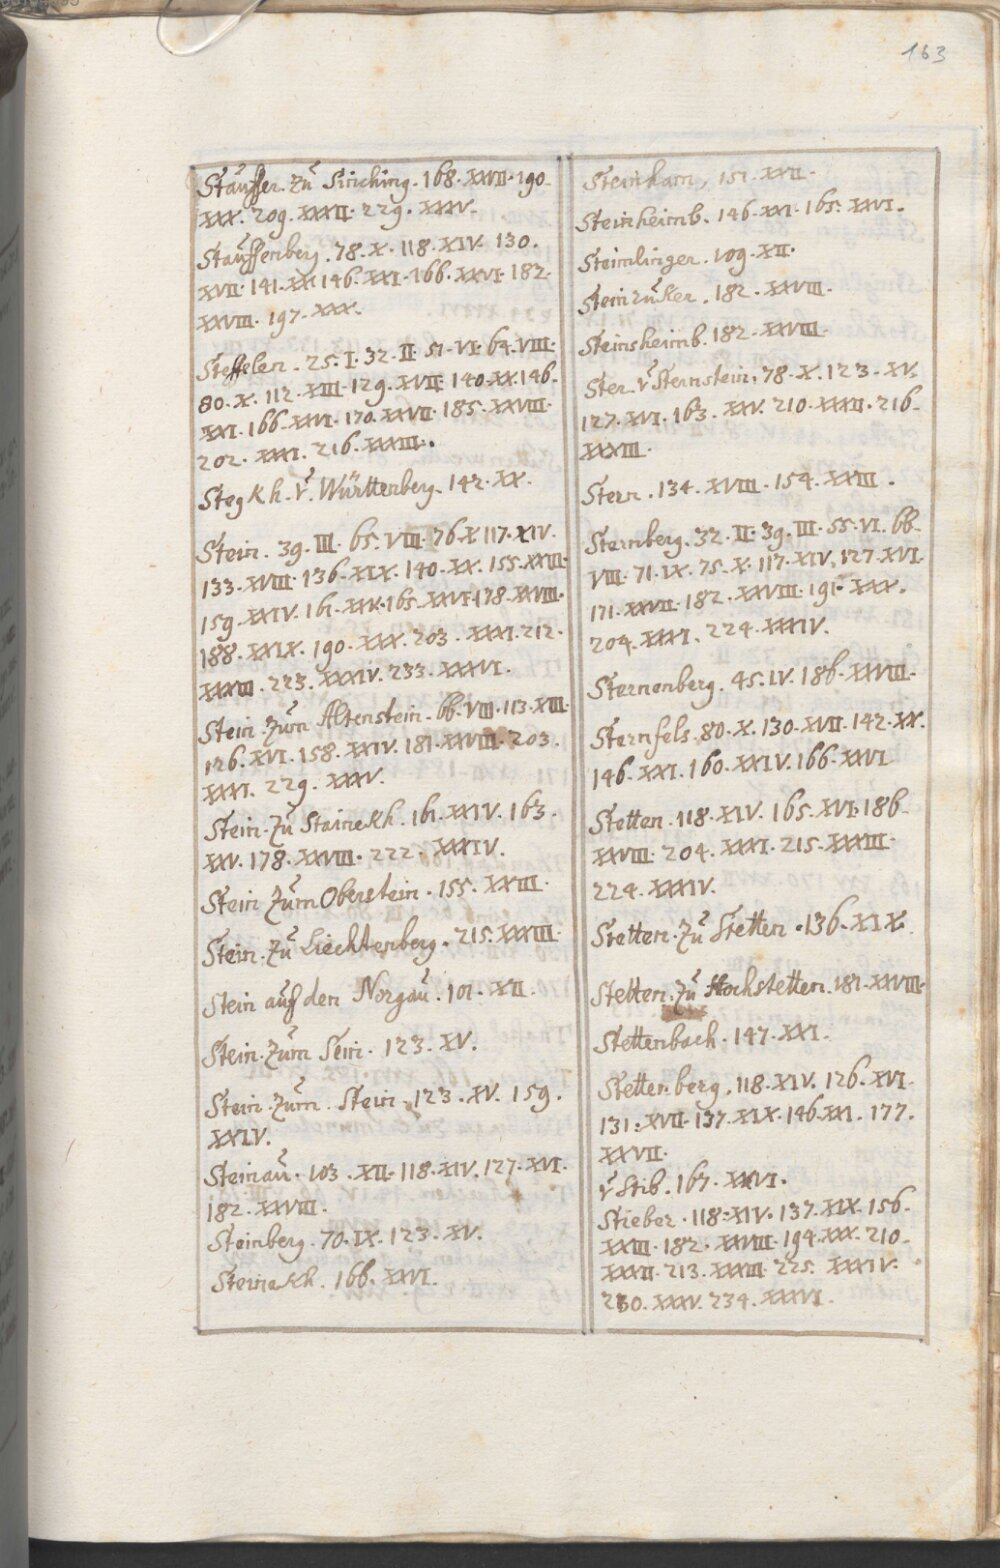 163
Stauffer. zu Sinching. 168. XXVII. 190.
XXX. 209. XXXII. 229. XXXV.
Stauffenberg. 78. X. 118. XIV. 130.
XVII. 141. XX. 146. XXI. 166. XXVI. 182.
XXVIII. 197. XXX.
Steffelen. 25. I. 32. II. 51. VI. 64. VIII.
80. X. 112. XIII. 129. XVII. 140. XX. 146.
XXI. 166. XXVI. 170. XXVII. 185. XXVIII.
202. XXXI. 216. XXXIII.
Stegkh. v. Württenberg. 142. XX.
Stein. 39. III. 65. VIII. 76. X. 117. XIV.
133. XVIII. 136. XIX. 140. XX. 155. XXIII.
159. XXIV. 161. XXV. 165. XXVI. 178. XXVIII.
188. XXIX. 190. XXX. 203. XXXI. 212.
XXXIII. 223. XXXIV. 233. XXXVI.
Stein. zum Altenstein. 66. VIII. 113. XIII.
126. XVI. 158. XXIV. 181. XXVIII. 203.
XXXI. 229. XXXV.
Stein. zu Stainekh. 161. XXIV. 163.
XXV. 178. XXVIII. 222. XXXIV.
Stein zum Oberstein. 155. XXIII.
Stein. zu Liechtenberg. 215. XXXIII.
Stein auf den Norgau. 101. XII.
Stein. zum Sein. 123. XV.
Stein. zum. Stein. 123. XV. 159.
XXIV.
Steinau. 103. XII. 118. XIV. 127. XVI.
182. XXVIII.
Steinberg. 70. IX. 123. XV.
Steinekh. 166. XXVI.
Steinham. 151. XXII.
Steinheimb. 146. XXI. 165. XXVI.
Steinlinger. 109. XII.
Steinruker. 182. XXVIII.
Steinsheimb. 182. XXVIII.
Ster. v Sternstein. 78. X. 123. XV.
127. XVI. 163. XXV. 210. XXXII. 216.
XXXIII.
Stern. 134. XVIII. 154. XXIII.
Sternberg. 32. II. 39. III. 55. VI. 66.
VIII. 71. IX. 75. X. 117. XIV. 127. XVI.
171. XXVII. 182. XXVIII. 191. XXX.
204. XXXI. 224. XXXIV.
Sternenberg. 45. IV. 186. XXVIII.
Sternfels. 80. X. 130. XVII. 142. XX.
146. XXI. 160. XXIV. 166. XXVI
Stetten. 118. XIV. 165. XVI. 186.
XXVIII. 204. XXXI. 215. XXXIII.
224. XXXIV.
Stetten. zu Stetten. 136. XIX.
Stetten. zu Hochstetten. 181. XXVIII.
Stettenbach. 147. XXI.
Stettenberg. 118. XIV. 126. XVI.
131. XVII. 137. XIX. 146. XXI. 177.
XXVII.
v Stib. 167. XXVI.
Stieber. 118. XIV. 137. XIX. 156.
XXIII. 182. XXVIII. 194. XXX. 210.
XXXII. 213. XXXIII. 225. XXXIV.
230. XXXV. 234. XXXVI.